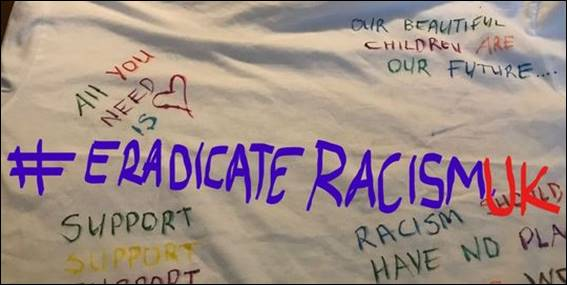 OUR BEAUTIFUL
CHILDREN ARE
OUR FUTURE....
All YOU
NEED
IS
# ERADICATE RACISM UK
SUPPORT
SUPPORT
SUPPORT
RACISM SHOULD
HAVE NO PLA
WE